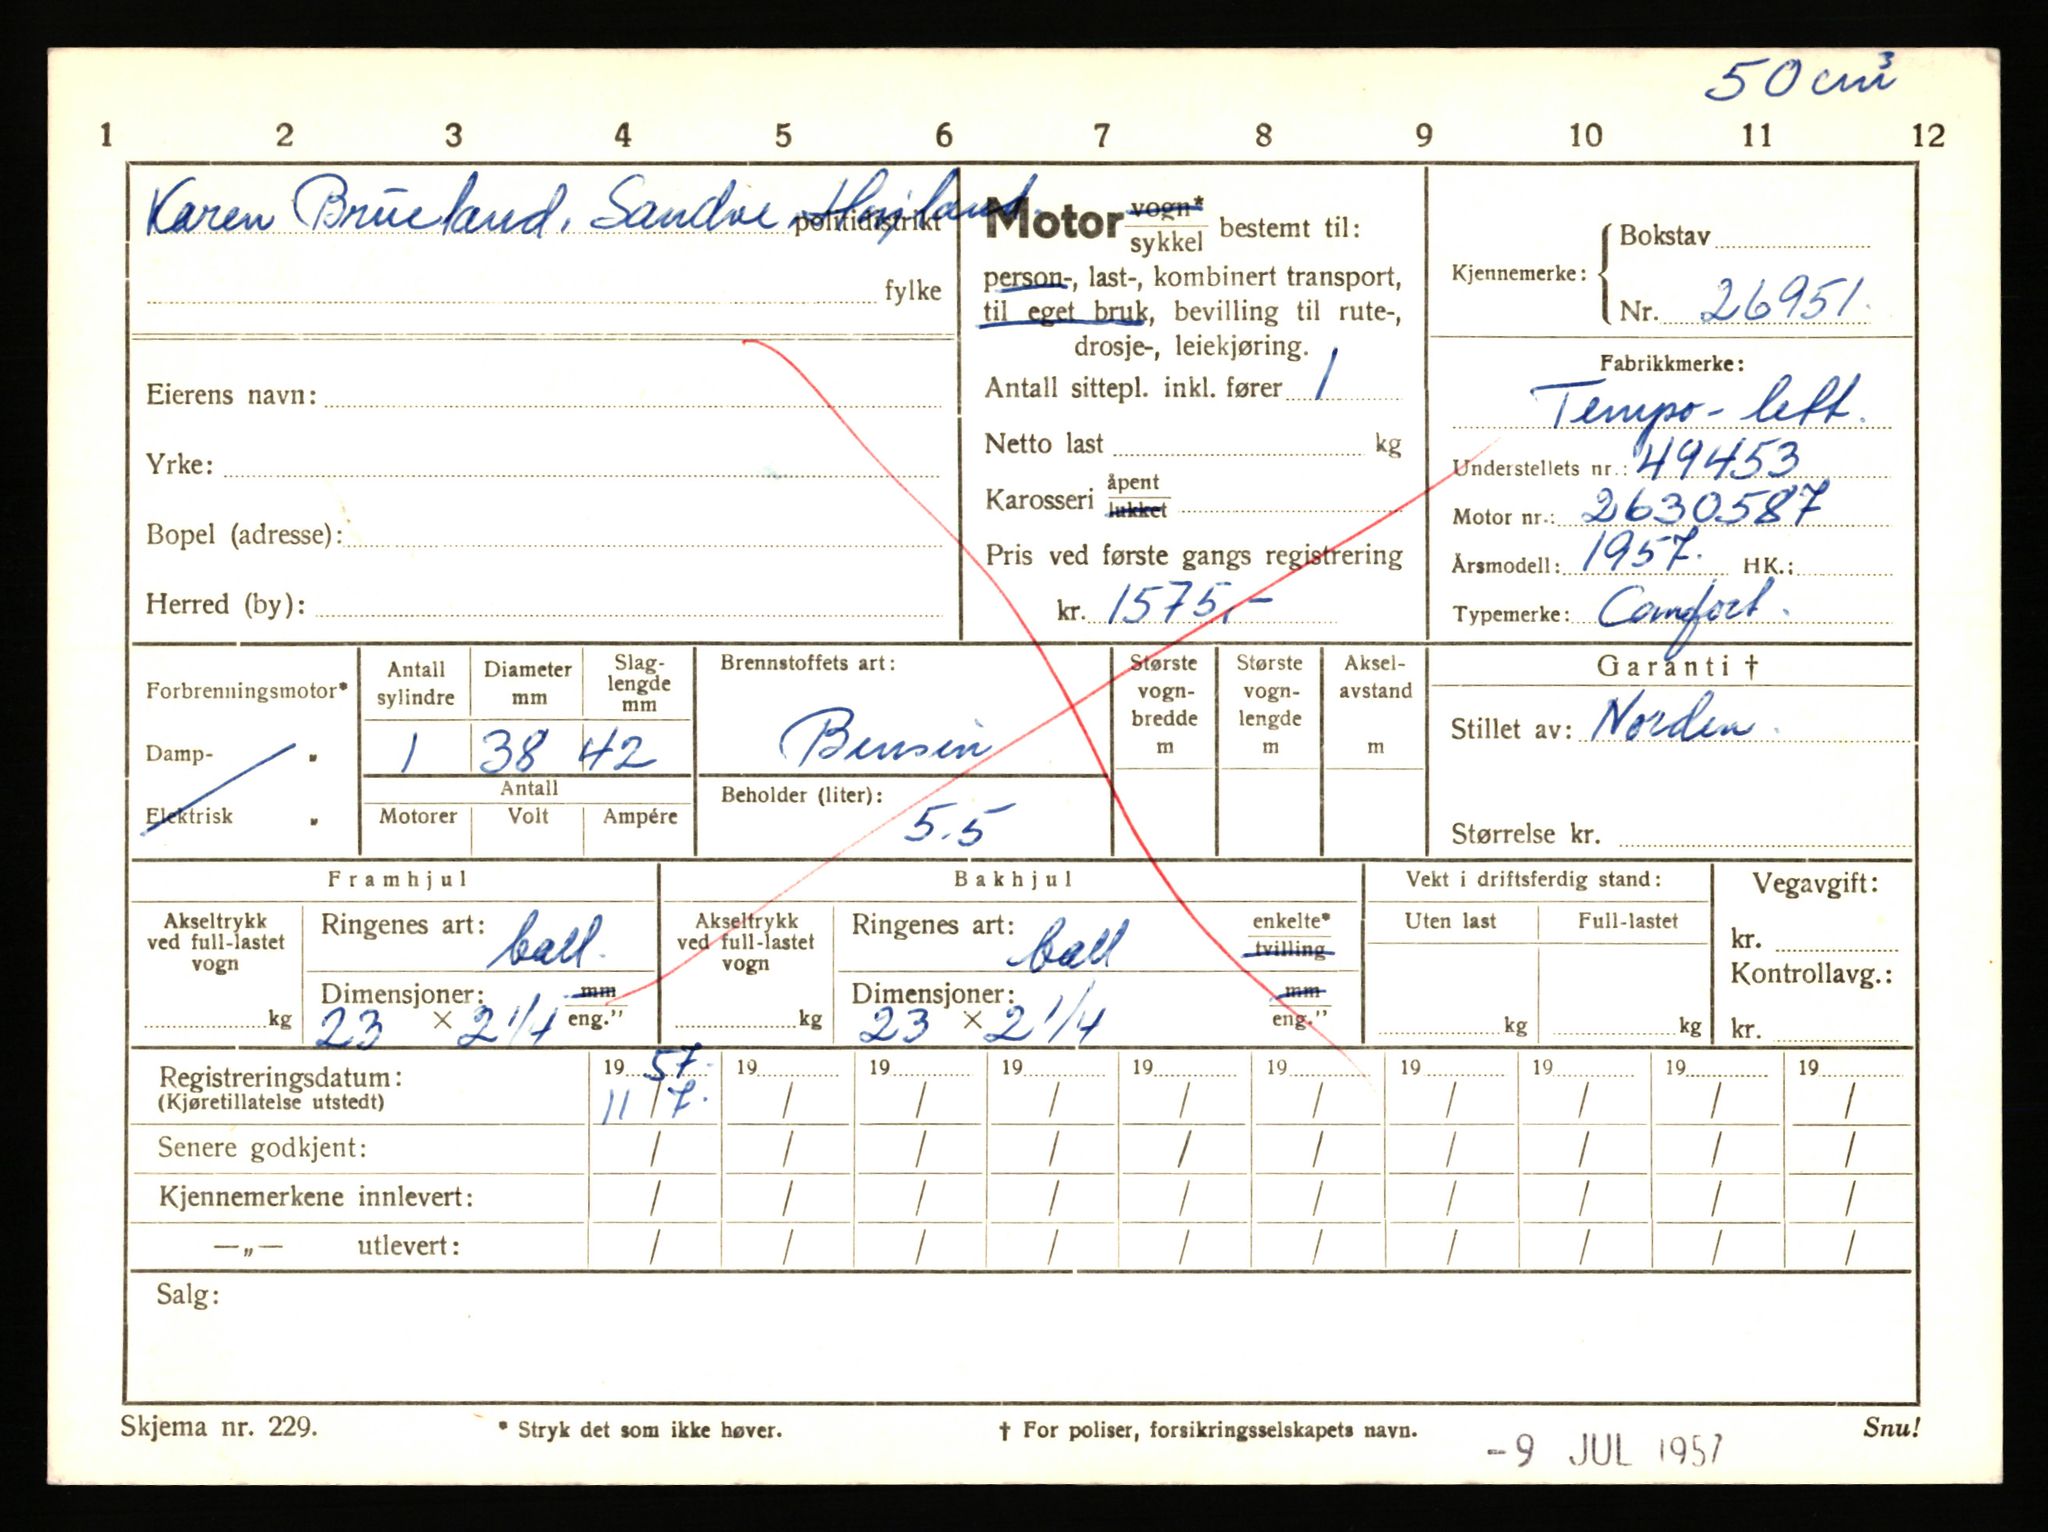 50 cm³
1 2 3 4 5 6 7 8 9 10 11 12
Karen Brueland, Sandve politidistrikt
fylke
Eierens navn:
Yrke:
Bopel (adresse):
Herred (by):
Motor vogn* / sykkel bestemt til:
person-, last-, kombinert transport,
til eget bruk, bevilling til rute-,
drosje-, leiekjøring.
Antall sittepl. inkl. fører 1
Netto last kg
Karosseri åpent / lukket
Pris ved første gangs registrering
kr. 1575,-
Kjennemerke: Bokstav
Nr. 26951.
Fabrikkmerke:
Tempo - lett.
Understellets nr.: 49453
Motor nr.: 2630587
Årsmodell: 1957. HK.:
Typemerke: Comfort.
Forbrenningsmotor*
Damp- „
Elektrisk „
Antall sylindre
Diameter mm
Slaglengde mm
1 38 42
Antall
Motorer Volt Ampére
Brennstoffets art:
Bensin
Beholder (liter):
5.5
Største vognbredde m
Største vognlengde m
Akselavstand m
Garanti †
Stillet av: Norden.
Størrelse kr.
Framhjul
Akseltrykk ved full-lastet vogn
kg
Ringenes art: ball.
Dimensjoner: mm / eng."
23 × 2 1/4
Bakhjul
Akseltrykk ved full-lastet vogn
kg
Ringenes art: ball enkelte* / tvilling
Dimensjoner: mm / eng."
23 × 2 1/4
Vekt i driftsferdig stand:
Uten last Full-lastet
kg kg
Vegavgift:
kr.
Kontrollavg.:
kr.
Registreringsdatum: 19 57. 19 19 19 19 19 19 19 19 19
(Kjøretillatelse utstedt) 11 / 7. / / / / / / / / /
Senere godkjent: / / / / / / / / / /
Kjennemerkene innlevert: / / / / / / / / / /
—„— utlevert: / / / / / / / / / /
Salg:
Skjema nr. 229. * Stryk det som ikke høver. † For poliser, forsikringsselskapets navn. Snu!
-9 JUL 1957